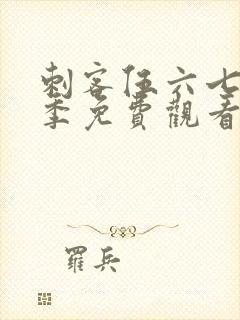 刺客伍六七
季免費觀看
羅兵